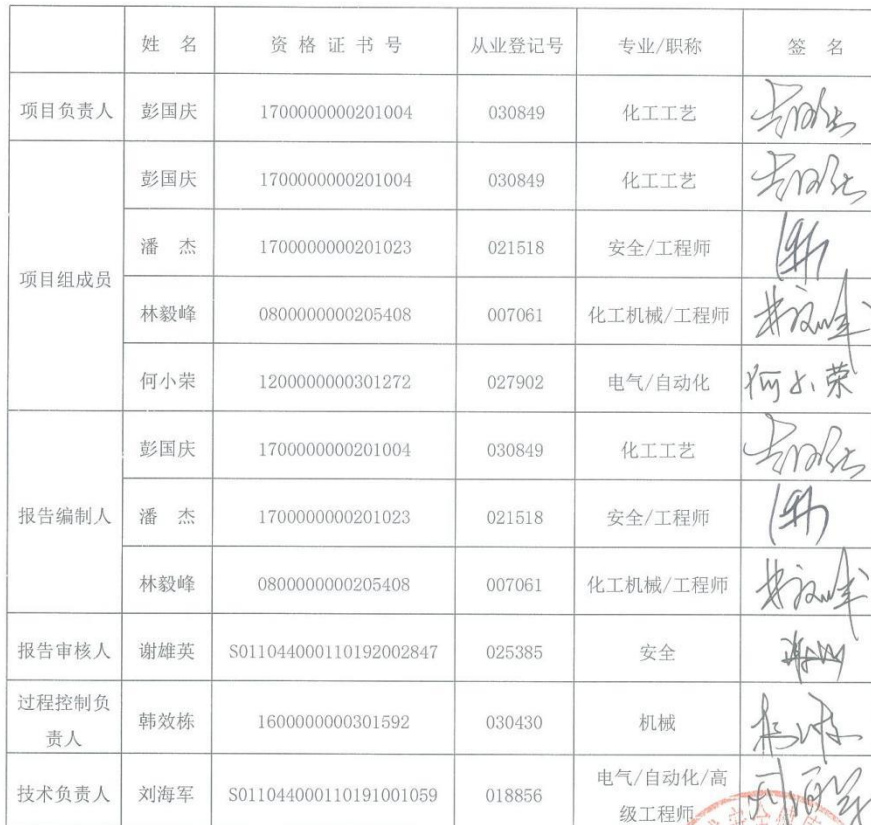 姓 名 资 格 证 书 号 从业登记号 专业/职称 签 名
项目负责人 彭国庆 1700000000201004 030849 化工工艺
项目组成员 彭国庆 1700000000201004 030849 化工工艺
潘 杰 1700000000201023 021518 安全/工程师
林毅峰 0800000000205408 007061 化工机械/工程师
何小荣 1200000000301272 027902 电气/自动化 何小荣
报告编制人 彭国庆 1700000000201004 030849 化工工艺
潘 杰 1700000000201023 021518 安全/工程师
林毅峰 0800000000205408 007061 化工机械/工程师
报告审核人 谢雄英 S011044000110192002847 025385 安全
过程控制负
责人 韩效栋 1600000000301592 030430 机械
技术负责人 刘海军 S011044000110191001059 018856 电气/自动化/高
级工程师